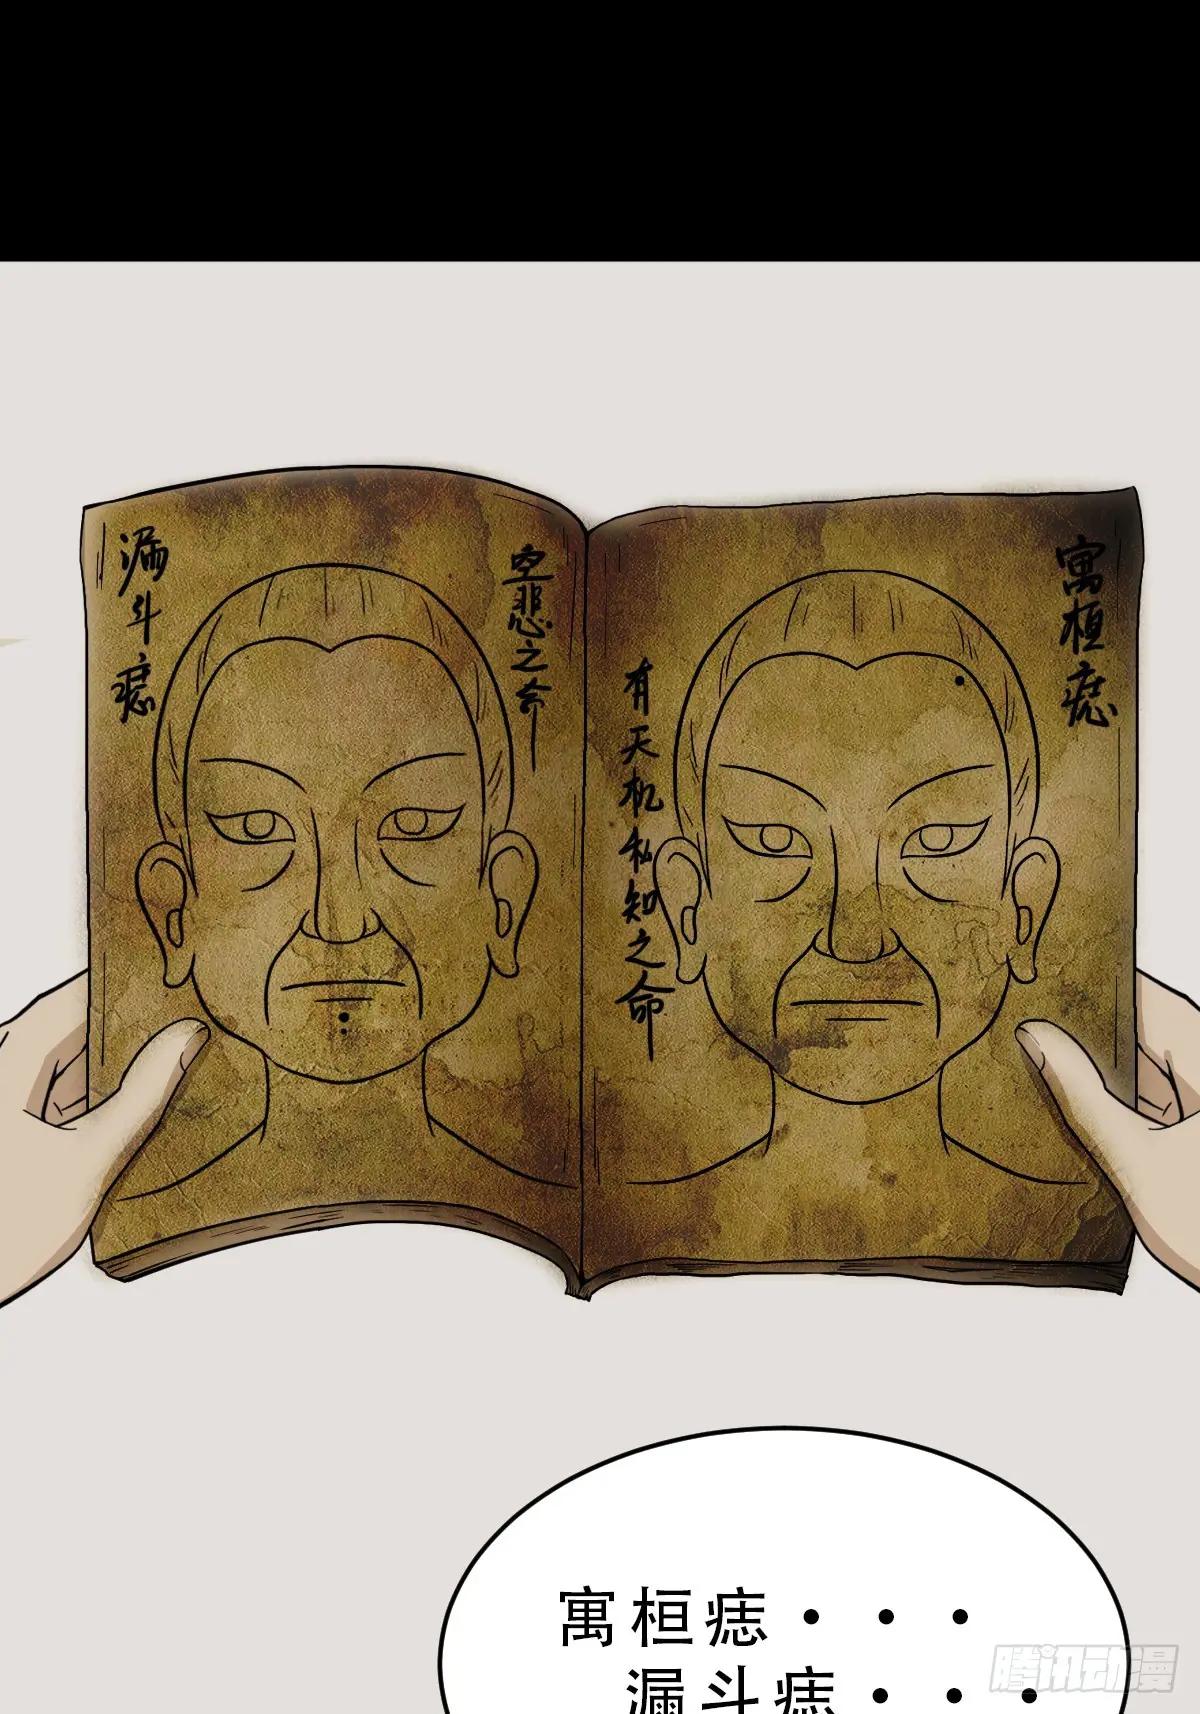 漏斗痣
空悲之命
寓桓痣
有天机私知之命
寓桓痣···
漏斗痣···
腾讯动漫